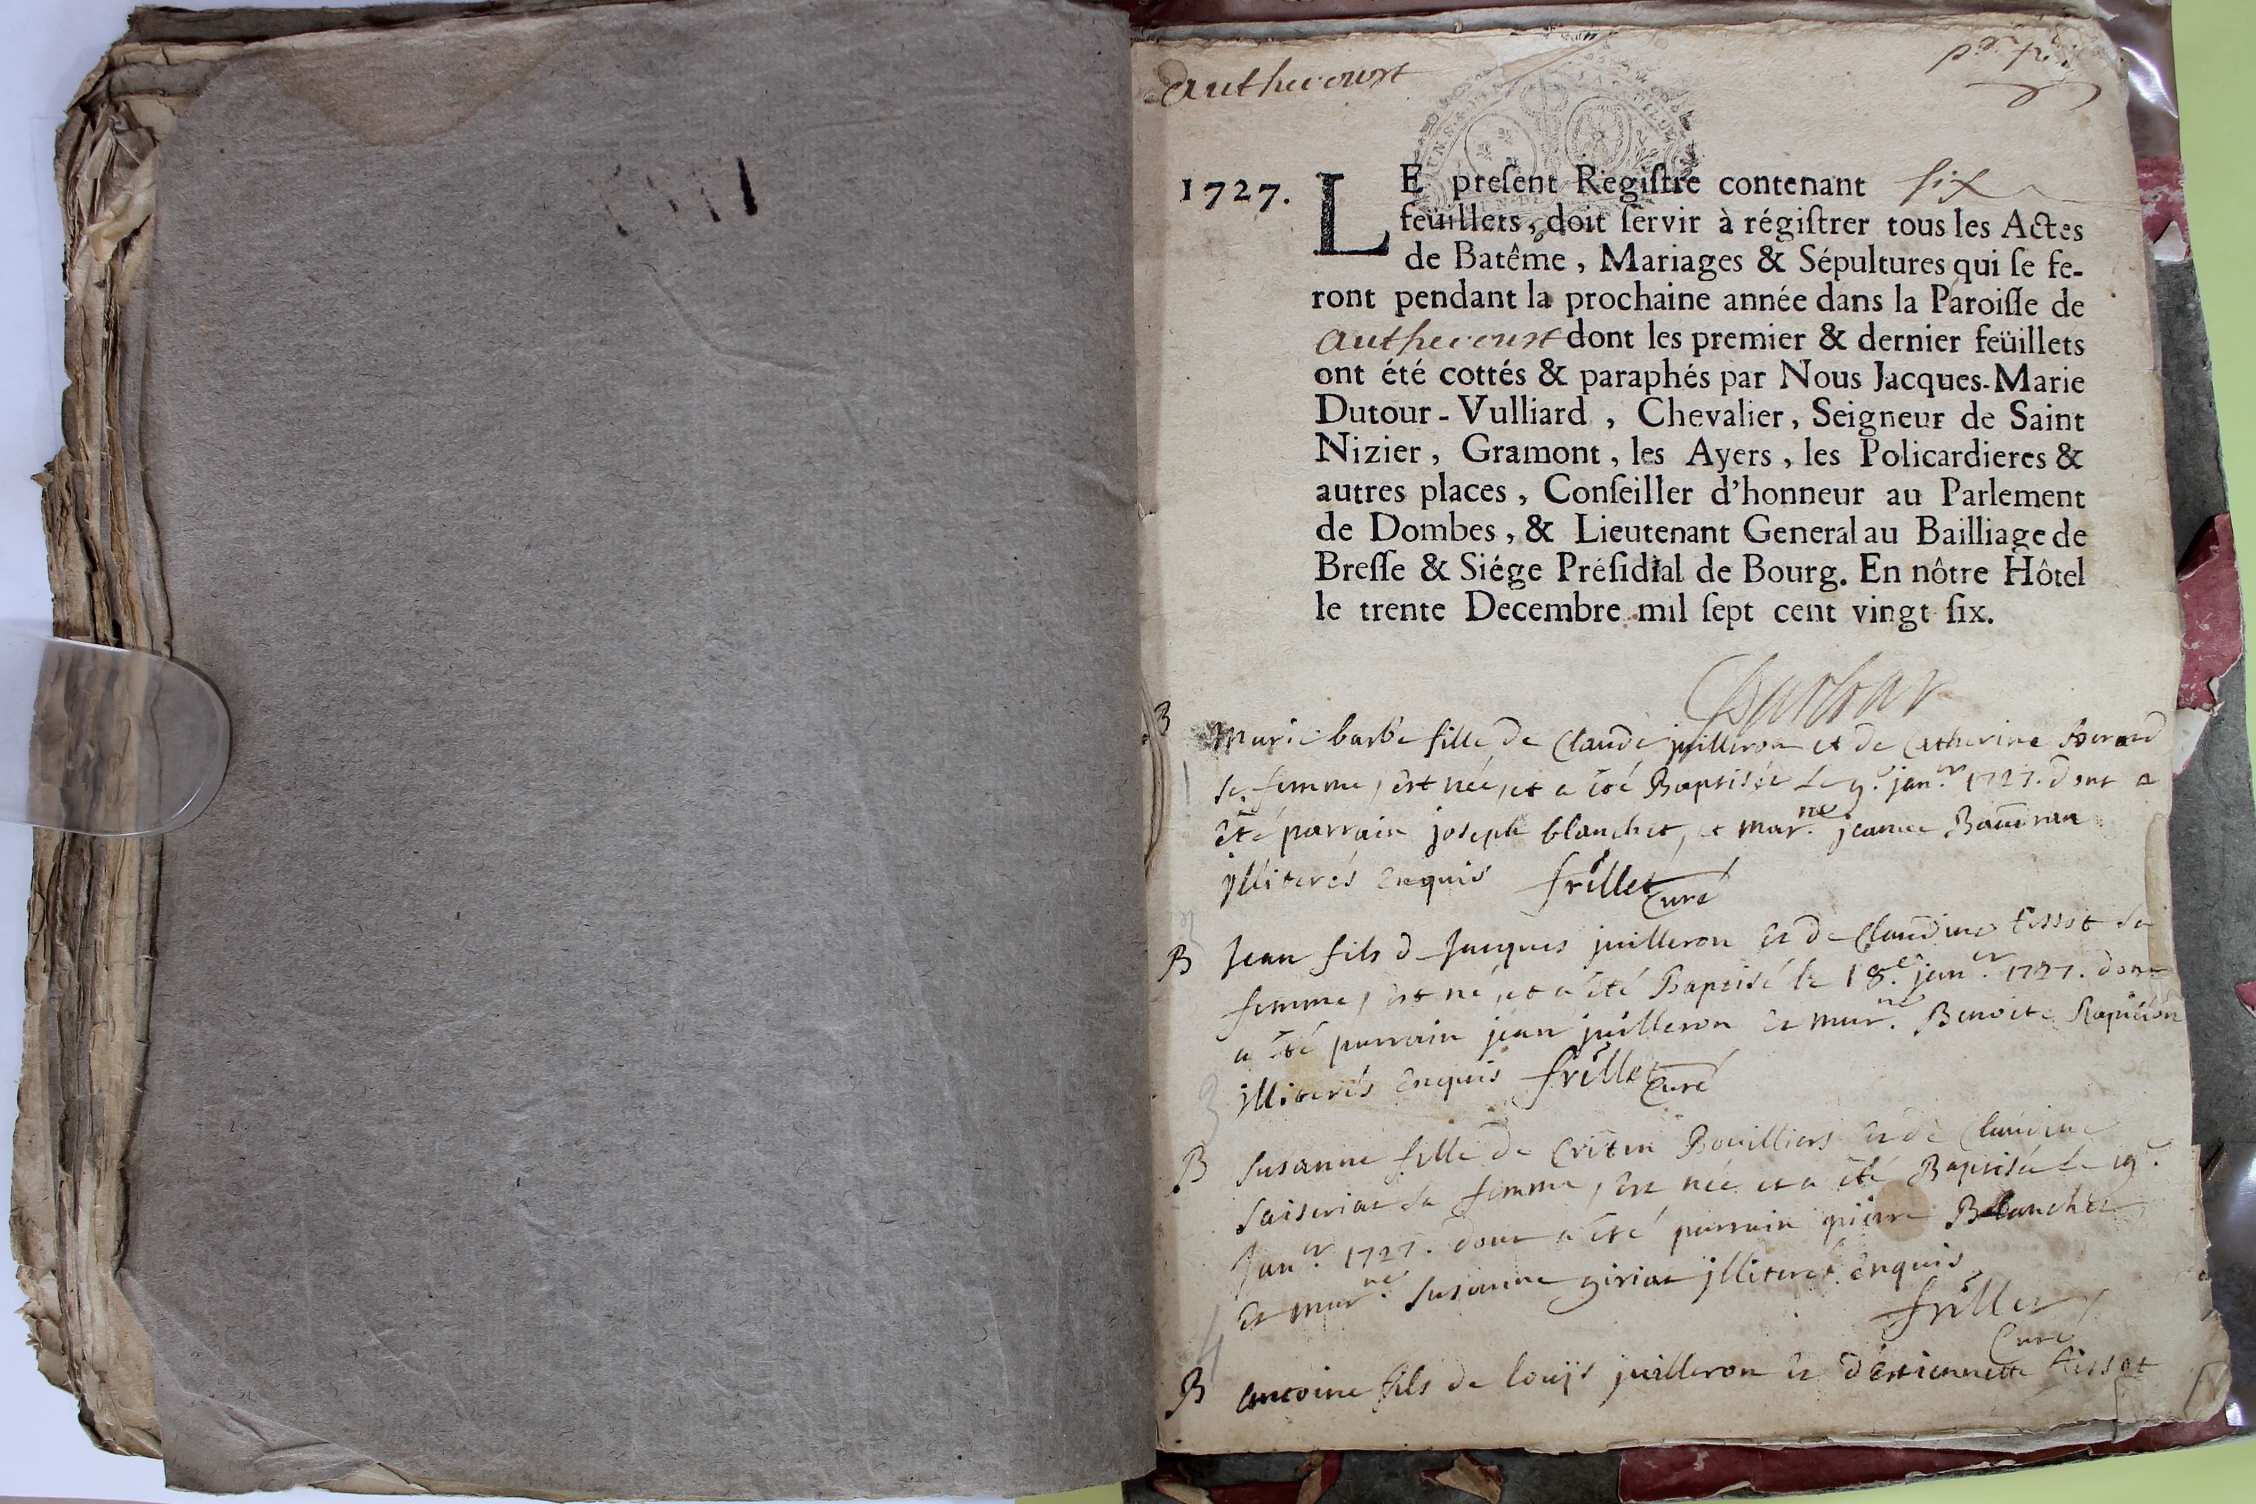 Authecourt
1727. LE preſent Regiſtre contenant ſix
feüillets, doit ſervir à régiſtrer tous les Actes
de Batême, Mariages & Sépultures qui ſe fe-
ront pendant la prochaine année dans la Paroiſſe de
Authecourt dont les premier & dernier feüillets
ont été cottés & paraphés par Nous Jacques-Marie
Dutour-Vulliard, Chevalier, Seigneur de Saint
Nizier, Gramont, les Ayers, les Policardieres &
autres places, Conſeiller d'honneur au Parlement
de Dombes, & Lieutenant General au Bailliage de
Breſſe & Siége Préſidial de Bourg. En nôtre Hôtel
le trente Decembre mil ſept cent vingt ſix.
B Marie barbe fille de Claude juilleron et de Catherine
sa femme, est née, et a été Baptisée le 9.e jan.er 1727. dont a
été parrain joseph blanchet, et mar.ne jeanne
illiterés enquis frillet Curé
B Jean fils de Jacques juilleron et de Claudine tissot sa
femme, est né, et a été Baptisé le 18.e jan.er 1727. dont
a été parrain jean juilleron et mar.ne Benoite
illiterés enquis frillet Curé
3
B Susanne fille de Cretin Bouilliers et de Claudine
saiseriat sa femme, est née et a été Baptisée le 19.e
Jan.er 1727. dont a été parrain pierre Blanchet
et mar.ne Susanne giriat illiterés enquis
frillet
Curé
4
B Antoine fils de louijs juilleron et d'estiennette tissot